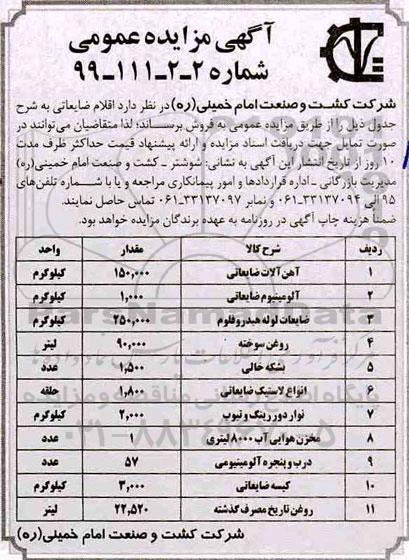 آگهی مزایده عمومی
شماره ۲-۲-۱۱۱-۹۹
شرکت کشت و صنعت امام خمینی (ره) در نظر دارد اقلام ضایعاتی به شرح
جدول ذیل را از طریق مزایده عمومی به فروش برساند؛ لذا متقاضیان می‌توانند در
صورت تمایل جهت دریافت اسناد مزایده و ارائه پیشنهاد قیمت حداکثر ظرف مدت
۱۰ روز از تاریخ انتشار این آگهی به نشانی: شوشتر ـ کشت و صنعت امام خمینی (ره)
مدیریت بازرگانی ـ اداره قراردادها و امور پیمانکاری مراجعه و یا با شماره تلفن‌های
۹۵ الی ۳۳۱۳۷۰۹۴-۰۶۱ و نمابر ۳۳۱۳۷۰۹۷-۰۶۱ تماس حاصل نمایند.
ضمناً هزینه چاپ آگهی در روزنامه به عهده برندگان مزایده خواهد بود.
ردیف شرح کالا مقدار واحد
۱ آهن آلات ضایعاتی ۱۵۰,۰۰۰ کیلوگرم
۲ آلومینیوم ضایعاتی ۱,۰۰۰ کیلوگرم
۳ ضایعات لوله هیدروفلوم ۲۵۰,۰۰۰ کیلوگرم
۴ روغن سوخته ۹۰,۰۰۰ لیتر
۵ بشکه خالی ۱,۵۰۰ عدد
۶ انواع لاستیک ضایعاتی ۱,۸۰۰ حلقه
۷ نوار دور رینگ و تیوپ ۲,۰۰۰ کیلوگرم
۸ مخزن هوایی آب ۸۰۰۰ لیتری ۱ عدد
۹ درب و پنجره آلومینیومی ۵۷ عدد
۱۰ کیسه ضایعاتی ۳,۰۰۰ کیلوگرم
۱۱ روغن تاریخ مصرف گذشته ۲۲,۵۲۰ لیتر
شرکت کشت و صنعت امام خمینی (ره)